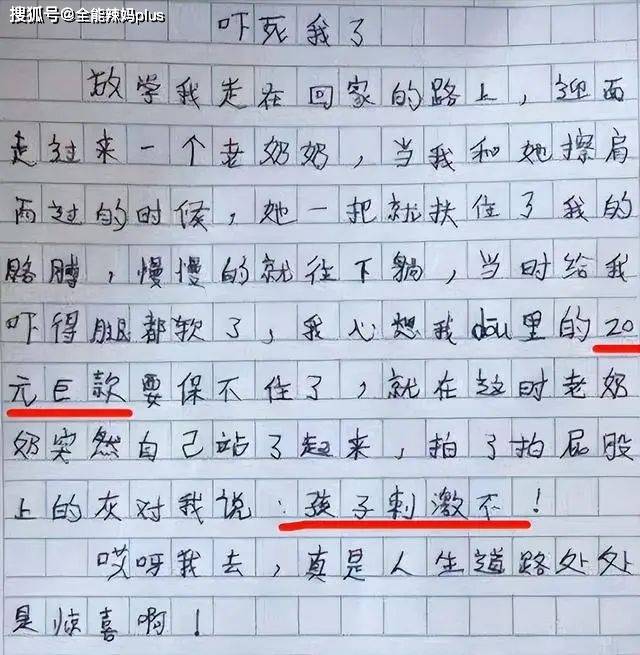 搜狐号@全能辣妈plus
吓死我了
放学我走在回家的路上，迎面
走过来一个老奶奶，当我和她擦肩
而过的时候，她一把就扶住了我的
胳膊，慢慢的就往下躺，当时给我
吓得腿都软了，我心想我dōu里的20
元巨款要保不住了，就在这时老奶
奶突然自己站了起来，拍了拍屁股
上的灰对我说：孩子刺激不！
哎呀我去，真是人生道路处处
是惊喜啊！